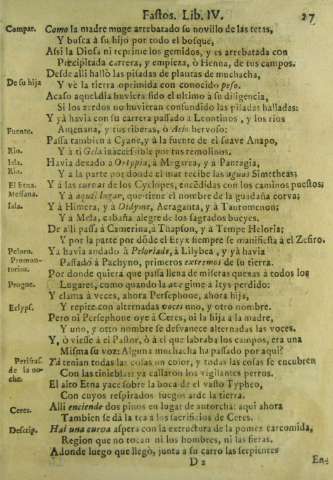 Fastos. Lib. IV. 27
Compar. Como la madre muge arrebatado su novillo de las tetas,
Y busca à su hijo por todo el bosque,
Assi la Diosa ni reprime los gemidos, y es arrebatada con
Precipitada carrera, y empieza, ò Henna, de tus campos.
Desde alli hallò las pisadas de plantas de muchacha,
De su hija Y vè la tierra oprimida con conocido peso.
Acaso aquel dia huviera sido el ultimo à su diligencia,
Si los cerdos no huvieran confundido las pisadas halladas:
Y yà havia con su carrera passado à Leontinos, y los rios
Amenana, y tus riberas, ò Acis hervoso:
Fuente. Passa tambien à Cyane, y à la fuente de el suave Anapo,
Rio. Y à ti Gela inaccessible por tus remolinos:
Isla. Havia dexado à Ortygia, à Megarea, y à Pantagia,
Rio. Y à la parte por donde el mar recibe las aguas Simetheas;
El Etna. Y à las cuevas de los Cyclopes, encẽdidas con los caminos puestos;
Messana. Y à aquel lugar, que tiene el nombre de la guadaña corva;
Isla. Y à Himera, y à Didyme, Acraganta, y à Tauromenon;
Y à Mela, cabaña alegre de los sagrados bueyes.
De alli passa à Camerina, à Thapson, y à Tempe Heloria;
Y por la parte por dõde el Eryx siempre se manifiesta à el Zefiro.
Peloro. Ya havia andado à Peloriade, à Lilybea, y yà havia
Promontorios. Passado à Pachyno, primeros extremos de su tierra.
Por donde quiera que passa llena de miseras quexas à todos los
Progne. Lugares, como quando la ave gime à Itys perdido:
Y clama à veces, ahora Persephone, ahora hija,
Eclyps. Y repite con alternadas voces uno, y otro nombre.
Pero ni Persephone oye à Ceres, ni la hija à la madre,
Y uno, y otro nombre se desvanece alternadas las voces.
Y, ò viesse à el Pastor, ò à el que labraba los campos, era una
Misma su voz: Alguna muchacha ha passado por aqui?
Perifras. de la noche. Yà tenian todas las cosas un color, y todas las cosas se encubren
Con las tinieblas: ya callaron los vigilantes perros.
El alto Etna yace sobre la boca de el vasto Typheo,
Con cuyos respirados fuegos arde la tierra.
Ceres. Alli enciende dos pinos en lugar de antorcha: aqui ahora
Tambien se dà la tea à los sacrificios de Ceres.
Descrip. Hai una cueva aspera con la extructura de la pomez carcomida,
Region que no tocan ni los hombres, ni las fieras.
Adonde luego que llegò, junta a su carro las serpientes
D 2 En-